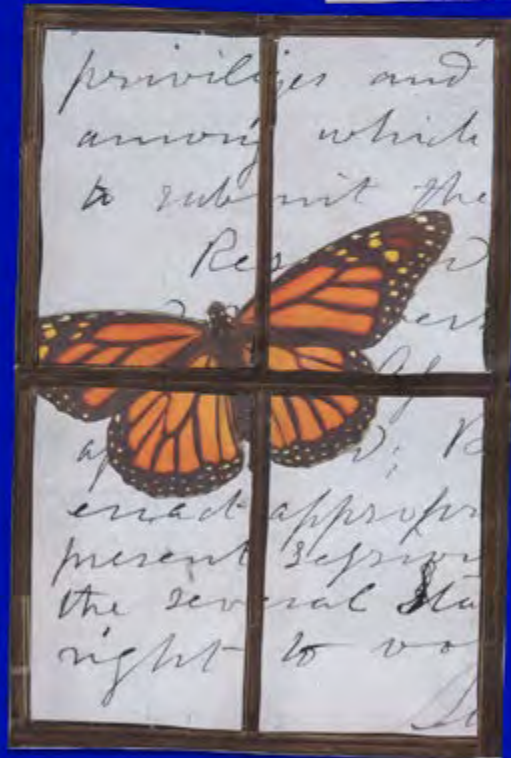 priviliges and
among which
to submit the
Res
enact appropr
present session
the several Sta
right to vo